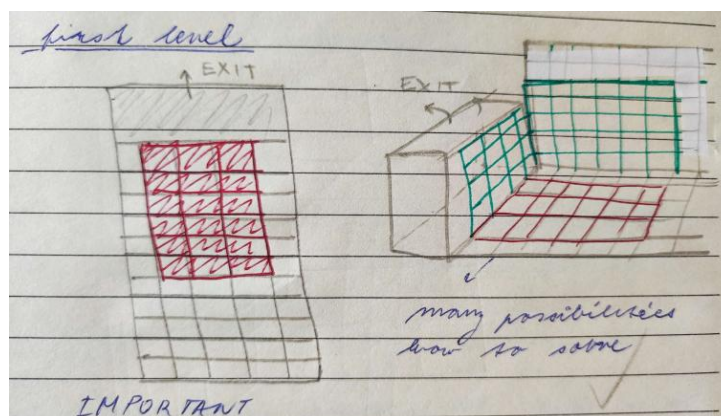 first level
EXIT
EXIT
many possibilities
how to solve
IMPORTANT